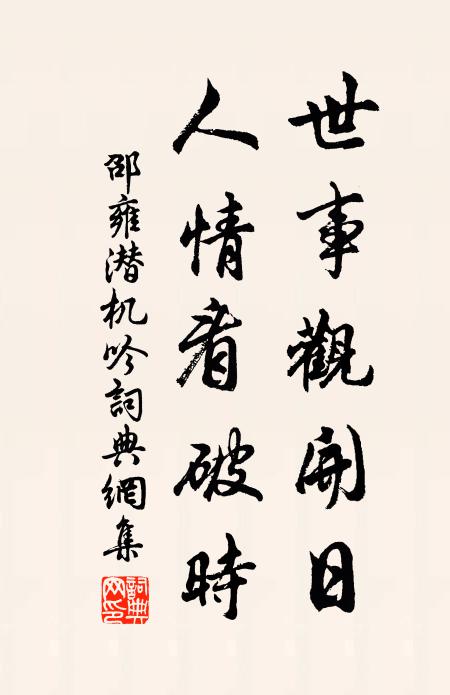 世事觀開日
人情看破時
邵雍潜机吟詞典網集
詞典網印